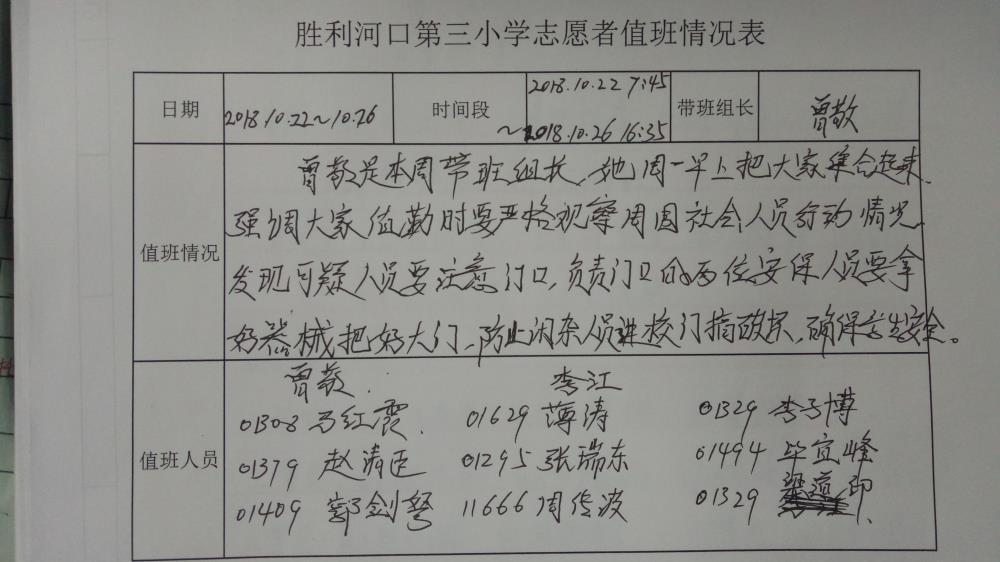 胜利河口第三小学志愿者值班情况表
日期 2018.10.22~10.26 时间段 2018.10.22 7:45 ~2018.10.26 16:35 带班组长 曾敬
曾敬是本周带班组长,她周一早上把大家集合起来,
强调大家值勤时要严格观察周围社会人员行动情况,
值班情况
发现可疑人员要注意门口,负责门口的两位安保人员要拿
好器械把好大门,防止闲杂人员进校门搞破坏,确保学生安全。
曾敬. 李江
01308 马红霞. 01629 薄涛 01329 李子博
值班人员 01379 赵清臣 01295 张瑞东 01494 毕宜峰
01409 郭剑弩 11666 周传波 01329